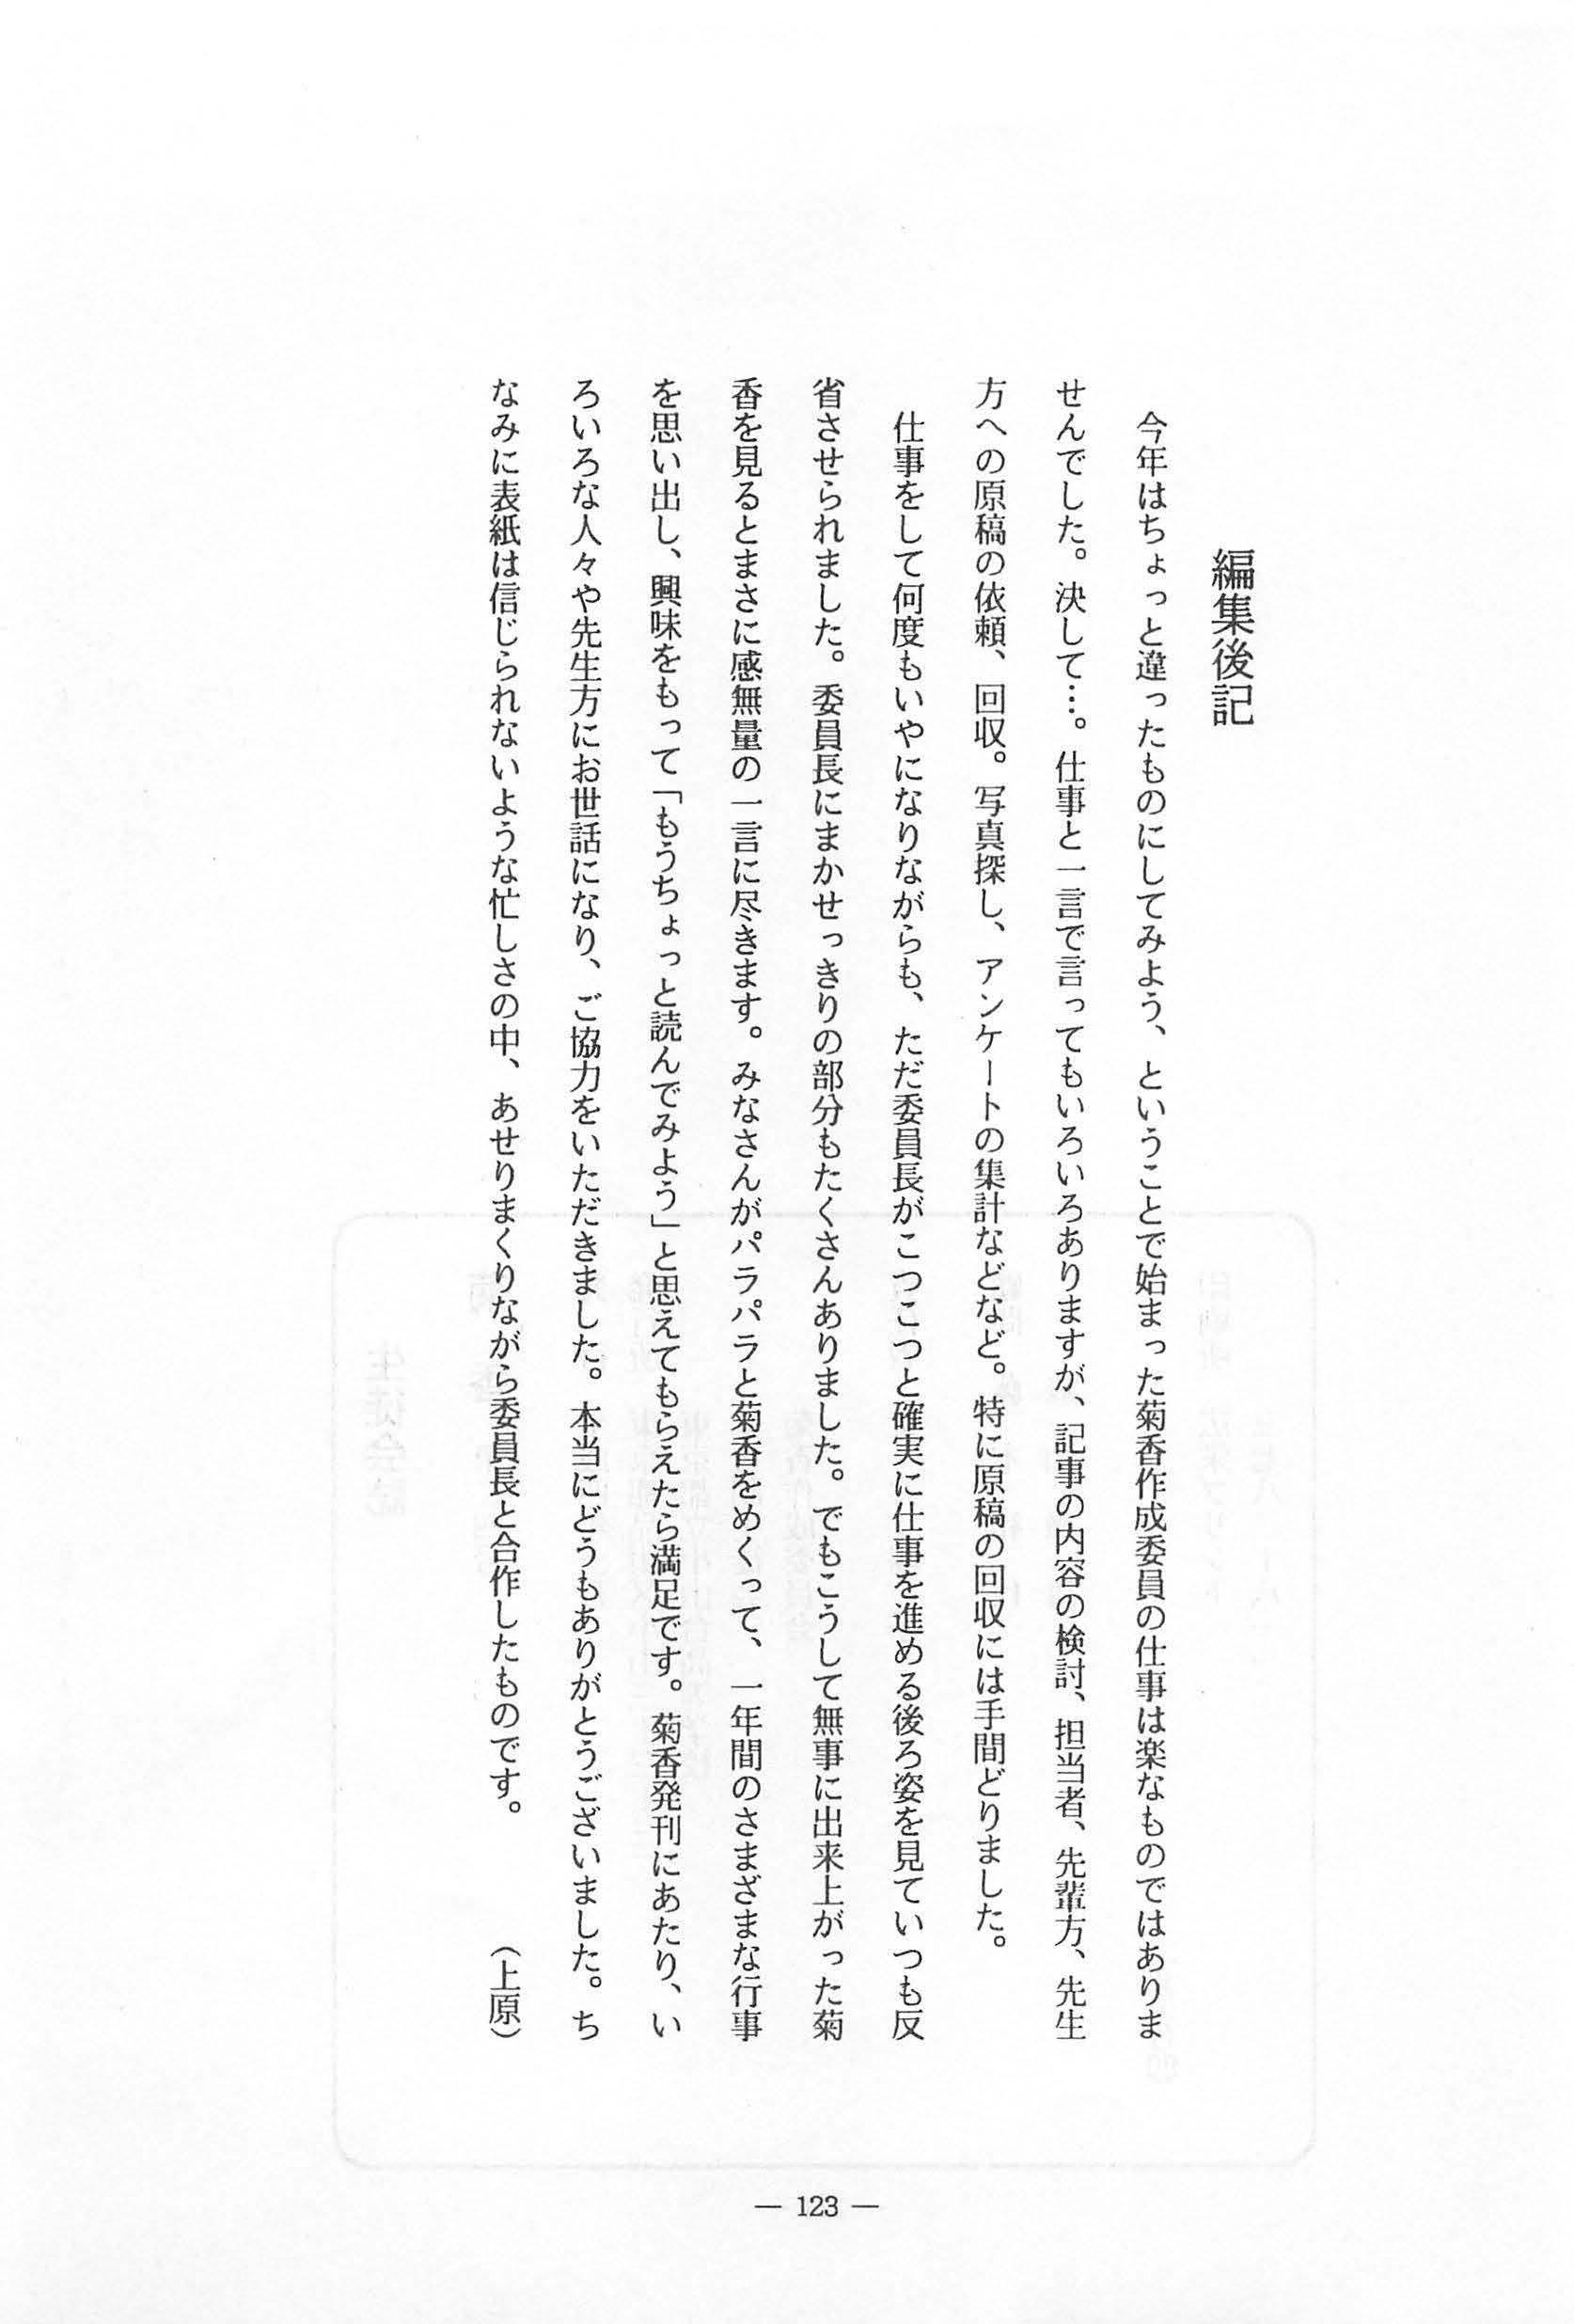 編集後記
今年はちょっと違ったものにしてみよう、ということで始まった菊香作成委員の仕事は楽なものではありま
せんでした。決して…。仕事と一言で言ってもいろいろありますが、記事の内容の検討、担当者、先輩方、先生
方への原稿の依頼、回収。写真探し、アンケートの集計などなど。特に原稿の回収には手間どりました。
仕事をして何度もいやになりながらも、ただ委員長がこつこつと確実に仕事を進める後ろ姿を見ていつも反
省させられました。委員長にまかせっきりの部分もたくさんありました。でもこうして無事に出来上がった菊
香を見るとまさに感無量の一言に尽きます。みなさんがパラパラと菊香をめくって、一年間のさまざまな行事
を思い出し、興味をもって「もうちょっと読んでみよう」と思えてもらえたら満足です。菊香発刊にあたり、い
ろいろな人々や先生方にお世話になり、ご協力をいただきました。本当にどうもありがとうございました。ち
なみに表紙は信じられないような忙しさの中、あせりまくりながら委員長と合作したものです。（上原）
— 123 —